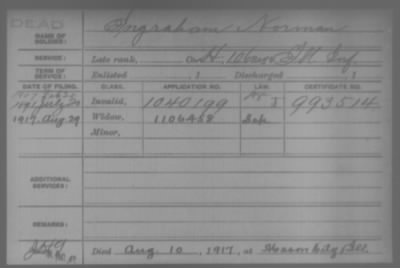 DEAD
NAME OF SOLDIER: Ingraham Norman
SERVICE: Late rank, Co. H, 106 Ill Inf.
TERM OF SERVICE: Enlisted , 1 Discharged , 1
DATE OF FILING. CLASS. APPLICATION NO. LAW. CERTIFICATE NO.
1891 July Invalid, 1040199 993514
1917. Aug. 29 Widow, 1106458 Sep
Minor,
ADDITIONAL SERVICES:
REMARKS:
Died Aug. 10, 1917, at Mason City Ill.